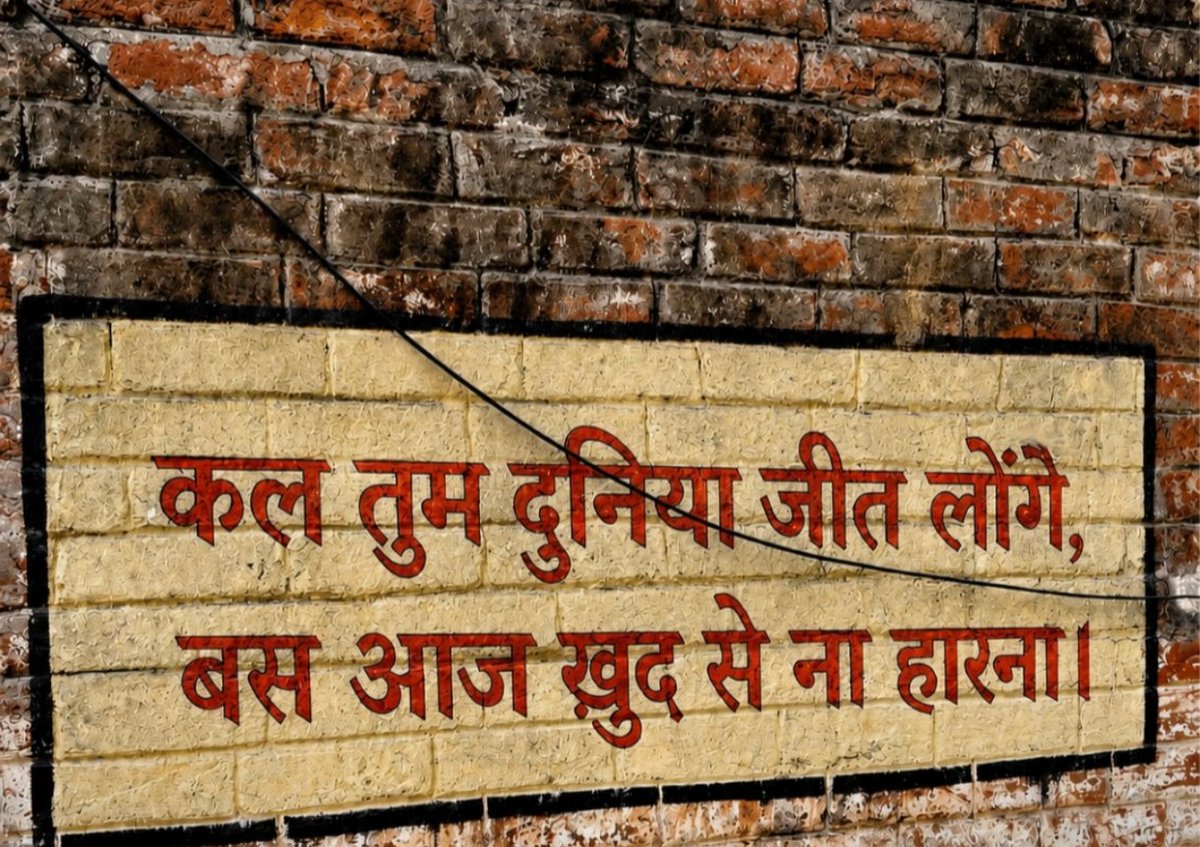 कल तुम दुनिया जीत लोंगै,
बस आज ख़ुद से ना हारना।